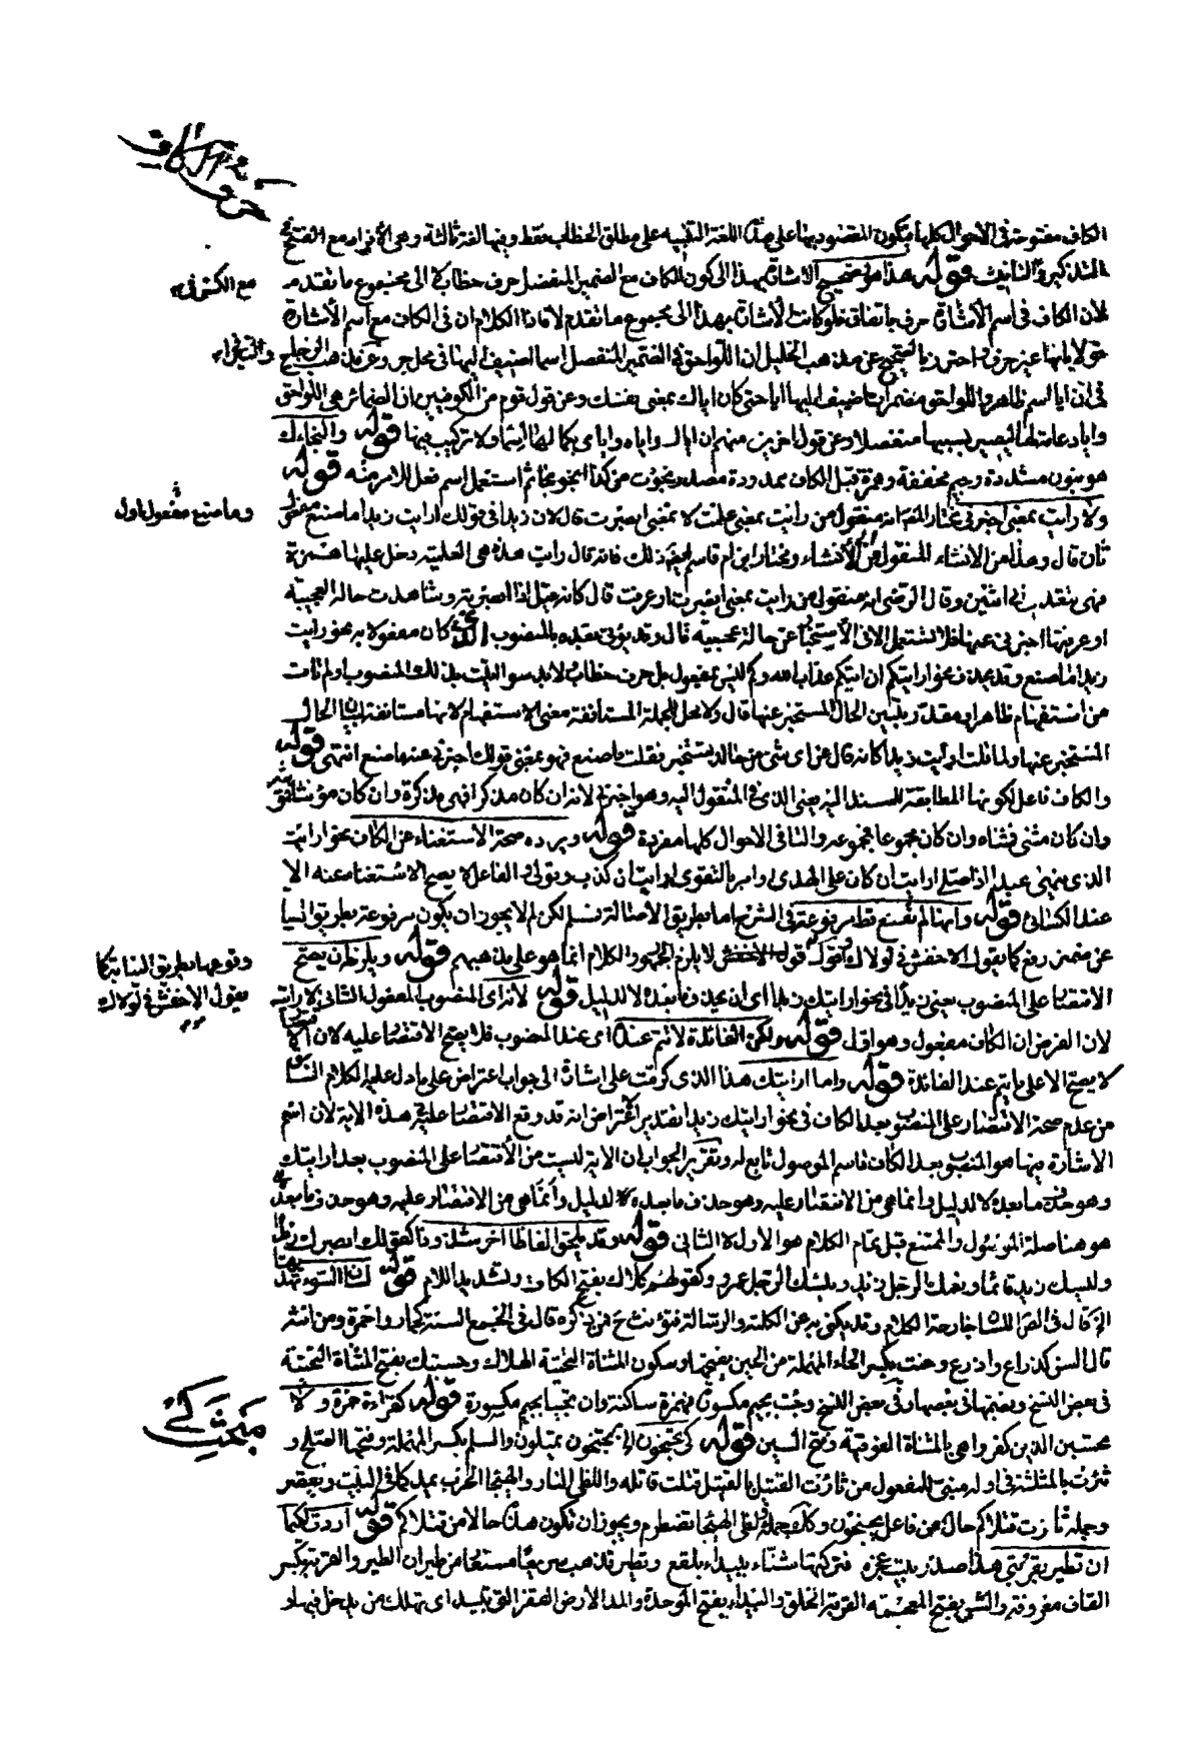 حروف الكاف
الكاف مفتوحة فى الاحوال كلها فيكون المقصود بها على هذه اللغة التنبيه على مطلق الخطاب فقط وفيها لغة ثالثة وهى الافراد مع الفتح فى
التذكير والتانيث قوله هذا هو صحيح الاشارة بهذا الى كون الكاف مع الضمير المنفصل حرف خطاب لا الى مجموع ما تقدم
مع الكسر فيه
لان الكاف فى اسم الاشارة حرف باتفاق فلو كانت الاشارة بهذا الى مجموع ما تقدم لافاد الكلام ان فى الكاف مع اسم الاشارة
قولا بانها غير حرف احترز بالصحيح عن مذهب الخليل ان اللواحق فى الضمير المنفصل اسما اضيف اليها فى محل جر وعن مذهب الزجاج
فى ان ايا اسم ظاهر واللواحق مضمرات اضيف اليها ايا حتى كان اياك بمعنى نفسك وعن قول قوم من الكوفيين ان الضمائر هى اللواحق
وايا دعامة لها ليصير بسببها منفصلا وعن قول اخرين منهم ان اياك واياه واياى بكمالها اسماء لا تركيب فيها قوله والنجاءك
هو بنون مشددة وجيم مخففة وهمزة قبل الكاف ممدودة مصدر نجوت من كذا انجو نجاء ثم استعمل اسم فعل للامر منه قوله
ولا رايت بمعنى اخبرنى مختار المص انه منقول من رايت بمعنى علمت لا بمعنى ابصرت قال لان زيدا فى قولك ارايت زيدا ما صنع
وما صنع مفعول اول
ثان قال وهذا من الانشاء المنقول من الانشاء ومختار ابن ام قاسم غير ذلك فانه قال رايت هذه هى العلمية دخل عليها همزة
فهى متعد الى اثنين وقال الرضى انه منقول من رايت بمعنى ابصرت او عرفت قال كانه قيل أأبصرته وشاهدت حاله العجيبة
او عرفتها اخبرنى عنها فلا تستعمل الا فى الاستخبار عن حالة عجيبة قال وقد يؤتى بعده بالمنصوب الذى كان مفعولا به نحو ارايت
زيدا ما صنع وقد يحذف نحو ارايتكم ان اتيكم عذاب الله وكم ليس بمفعول بل حرف خطاب ولا بد سواء اتيت بذلك المنصوب او لم تات
من استفهام ظاهر او مقدر يبين الحال المستخبر عنها قال ولا محل للجملة المستانفة معنى الاستفهام لانها مستانفة لبيان الحال
المستخبر عنها ولما قلت ارايت زيدا كانه قال عن اى شئ من حاله يستخبر فقلت ما صنع فهو بمعنى قولك اخبرنى عنه ما صنع انتهى قوله
والكاف فاعل لكونها المطابقة للمسند اليه يعنى الذى فى المنقول اليه وهو اخبرنى لانه ان كان مذكرا فهى مذكرة وان كان مؤنثا
وان كان مثنى فمثناه وان كان مجموعا فمجموعه والتا فى الاحوال كلها مفردة قوله ويرده صحة الاستغناء عن الكاف نحو ارايت
الذى ينهى عبدا اذا صلى ارايت ان كان على الهدى او امر بالتقوى ارايت ان كذب وتولى والفاعل لا يصح الاستغناء عنه الا
عند الكسائى قوله وانها لم تقع قط مرفوعة فى الشرح اما بطريق الاصالة فمسلم لكن لم لا يجوز ان يكون مرفوعة بطريق النيابة
عن ضمير رفع كما يقول الاخفش فى لولاك قوله لا يلزم الجمهور الكلام انما هو على مذهبهم قوله ويلزمه ان يصح
وقوعها بطريق النيابة كما
يقول الاخفش فى لولاك
الاقتصار على المنصوب يعنى زيدا فى نحو ارايتك زيدا اى ان يحذف ما بعده لا لدليل قوله لانه اى المنصوب المفعول الثانى لارايت
لان الفرض ان الكاف مفعول وهو اول قوله ولكن الفائدة لا تتم عنده اى عند المنصوب فلا يصح الاقتصار عليه لان
لا يصح الا على ما يتم عنده الفائدة قوله واما ارايتك هذا الذى كرمت على اشارة الى جواب اعتراض على ما دل عليه الكلام
من عدم صحة الاقتصار على المنصوب بعد الكاف فى نحو ارايتك زيدا تقدير الاعتراض انه قد وقع الاقتصار عليه فى هذه الاية لان اسم
الاشارة فيها هو المنصوب بعد الكاف فاسم الموصول تابع له وتقرير الجواب ان الاية ليست من الاقتصار على المنصوب بعد ارايتك
وهو حذف ما بعده لا لدليل وانما هى من الاقتصار عليه وهو حذف ما بعده
هو هنا صلة الموصول والممتنع قبل تمام الكلام هو الاول لا الثانى قوله وقد تلحق الفاظا اخر شذوذا كقولك ابصرك زيدا
وليسك زيد قائما ونعمك الرجل زيد وبئسك الرجل عمرو وكقولهم كلاك بفتح الكاف وتشديد اللام قوله لسان السوء تهديها
الخ قال فى الصراح اللسان جارحة الكلام وقد يكنى به عن الكلمة والرسالة فتؤنث ح فمن ذكره قال فى الجمع السنة كحمار واحمرة ومن انثه
قال السن كذراع واذرع وحنت بكسر الحاء المهملة من الحين بفتحها وسكون المثناة التحتية الهلاك وحسبتك بفتح المثناة التحتية
فى بعض النسخ وبضمها فى بعضها وفى بعض النسخ وجئت بجيم مكسورة فهمزة ساكنة وان تجيئا بجيم مكسورة قوله كقراءة حمزة ولا
مبحث كى
تحسبن الذين كفروا هى بالمثناة الفوقية وفتح السين قوله كى تجنحون الخ تجنحون تميلون والسلم بكسر المهملة وفتحها الصلح و
ثئرت بالمثلثة فى اوله مبنى للمفعول من ثارت القتيل بالقتيل قتلت قاتله واللظى النار والهيجا الحرب يمد كما فى البيت ويقصر
وجملة ثارت قتلاكم حال من فاعل تجنحون وكذا جملة لظى الهيجا تضطرم ويجوز ان تكون هذه حالا من قتلاكم قوله اردت لكيما
ان تطير بقربتى هذا صدر بيت عجزه فتتركها شنا ببيداء بلقع وتطير تذهب سريعا مستعار من طيران الطير والقربة بكسر
القاف معروفة والشن بفتح المعجمة القربة الخلق والبيداء بفتح الموحدة والمد الارض القفر التى تبيد اى تهلك من يدخل فيها و